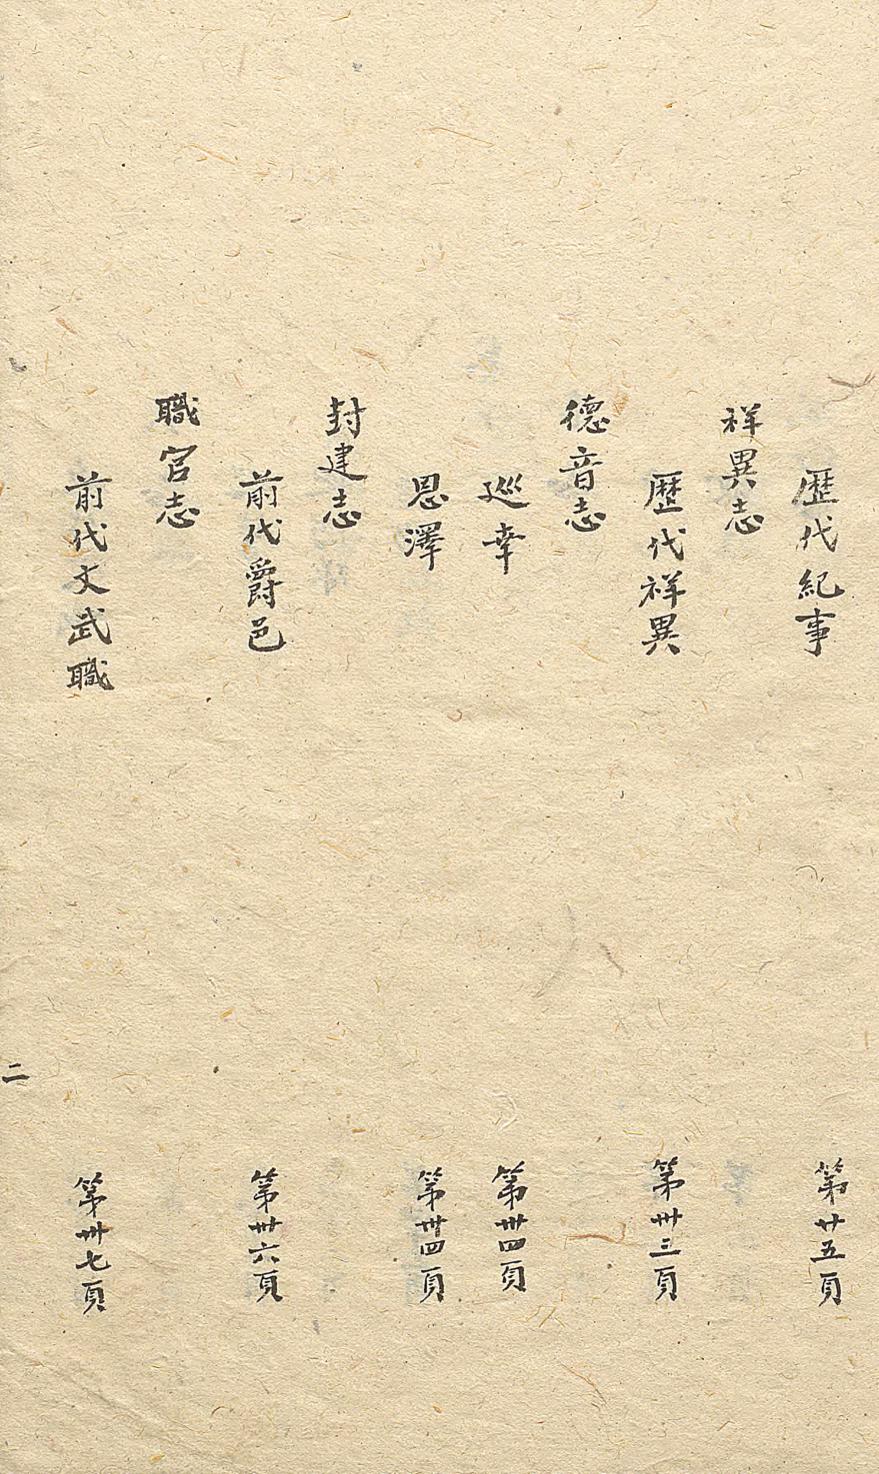 歷代紀事 第廿五頁
祥異志
歷代祥異 第卅三頁
德音志
巡幸 第卅四頁
恩澤 第卅四頁
封建志
前代爵邑 第卅六頁
職官志
前代文武職 第卅七頁
二